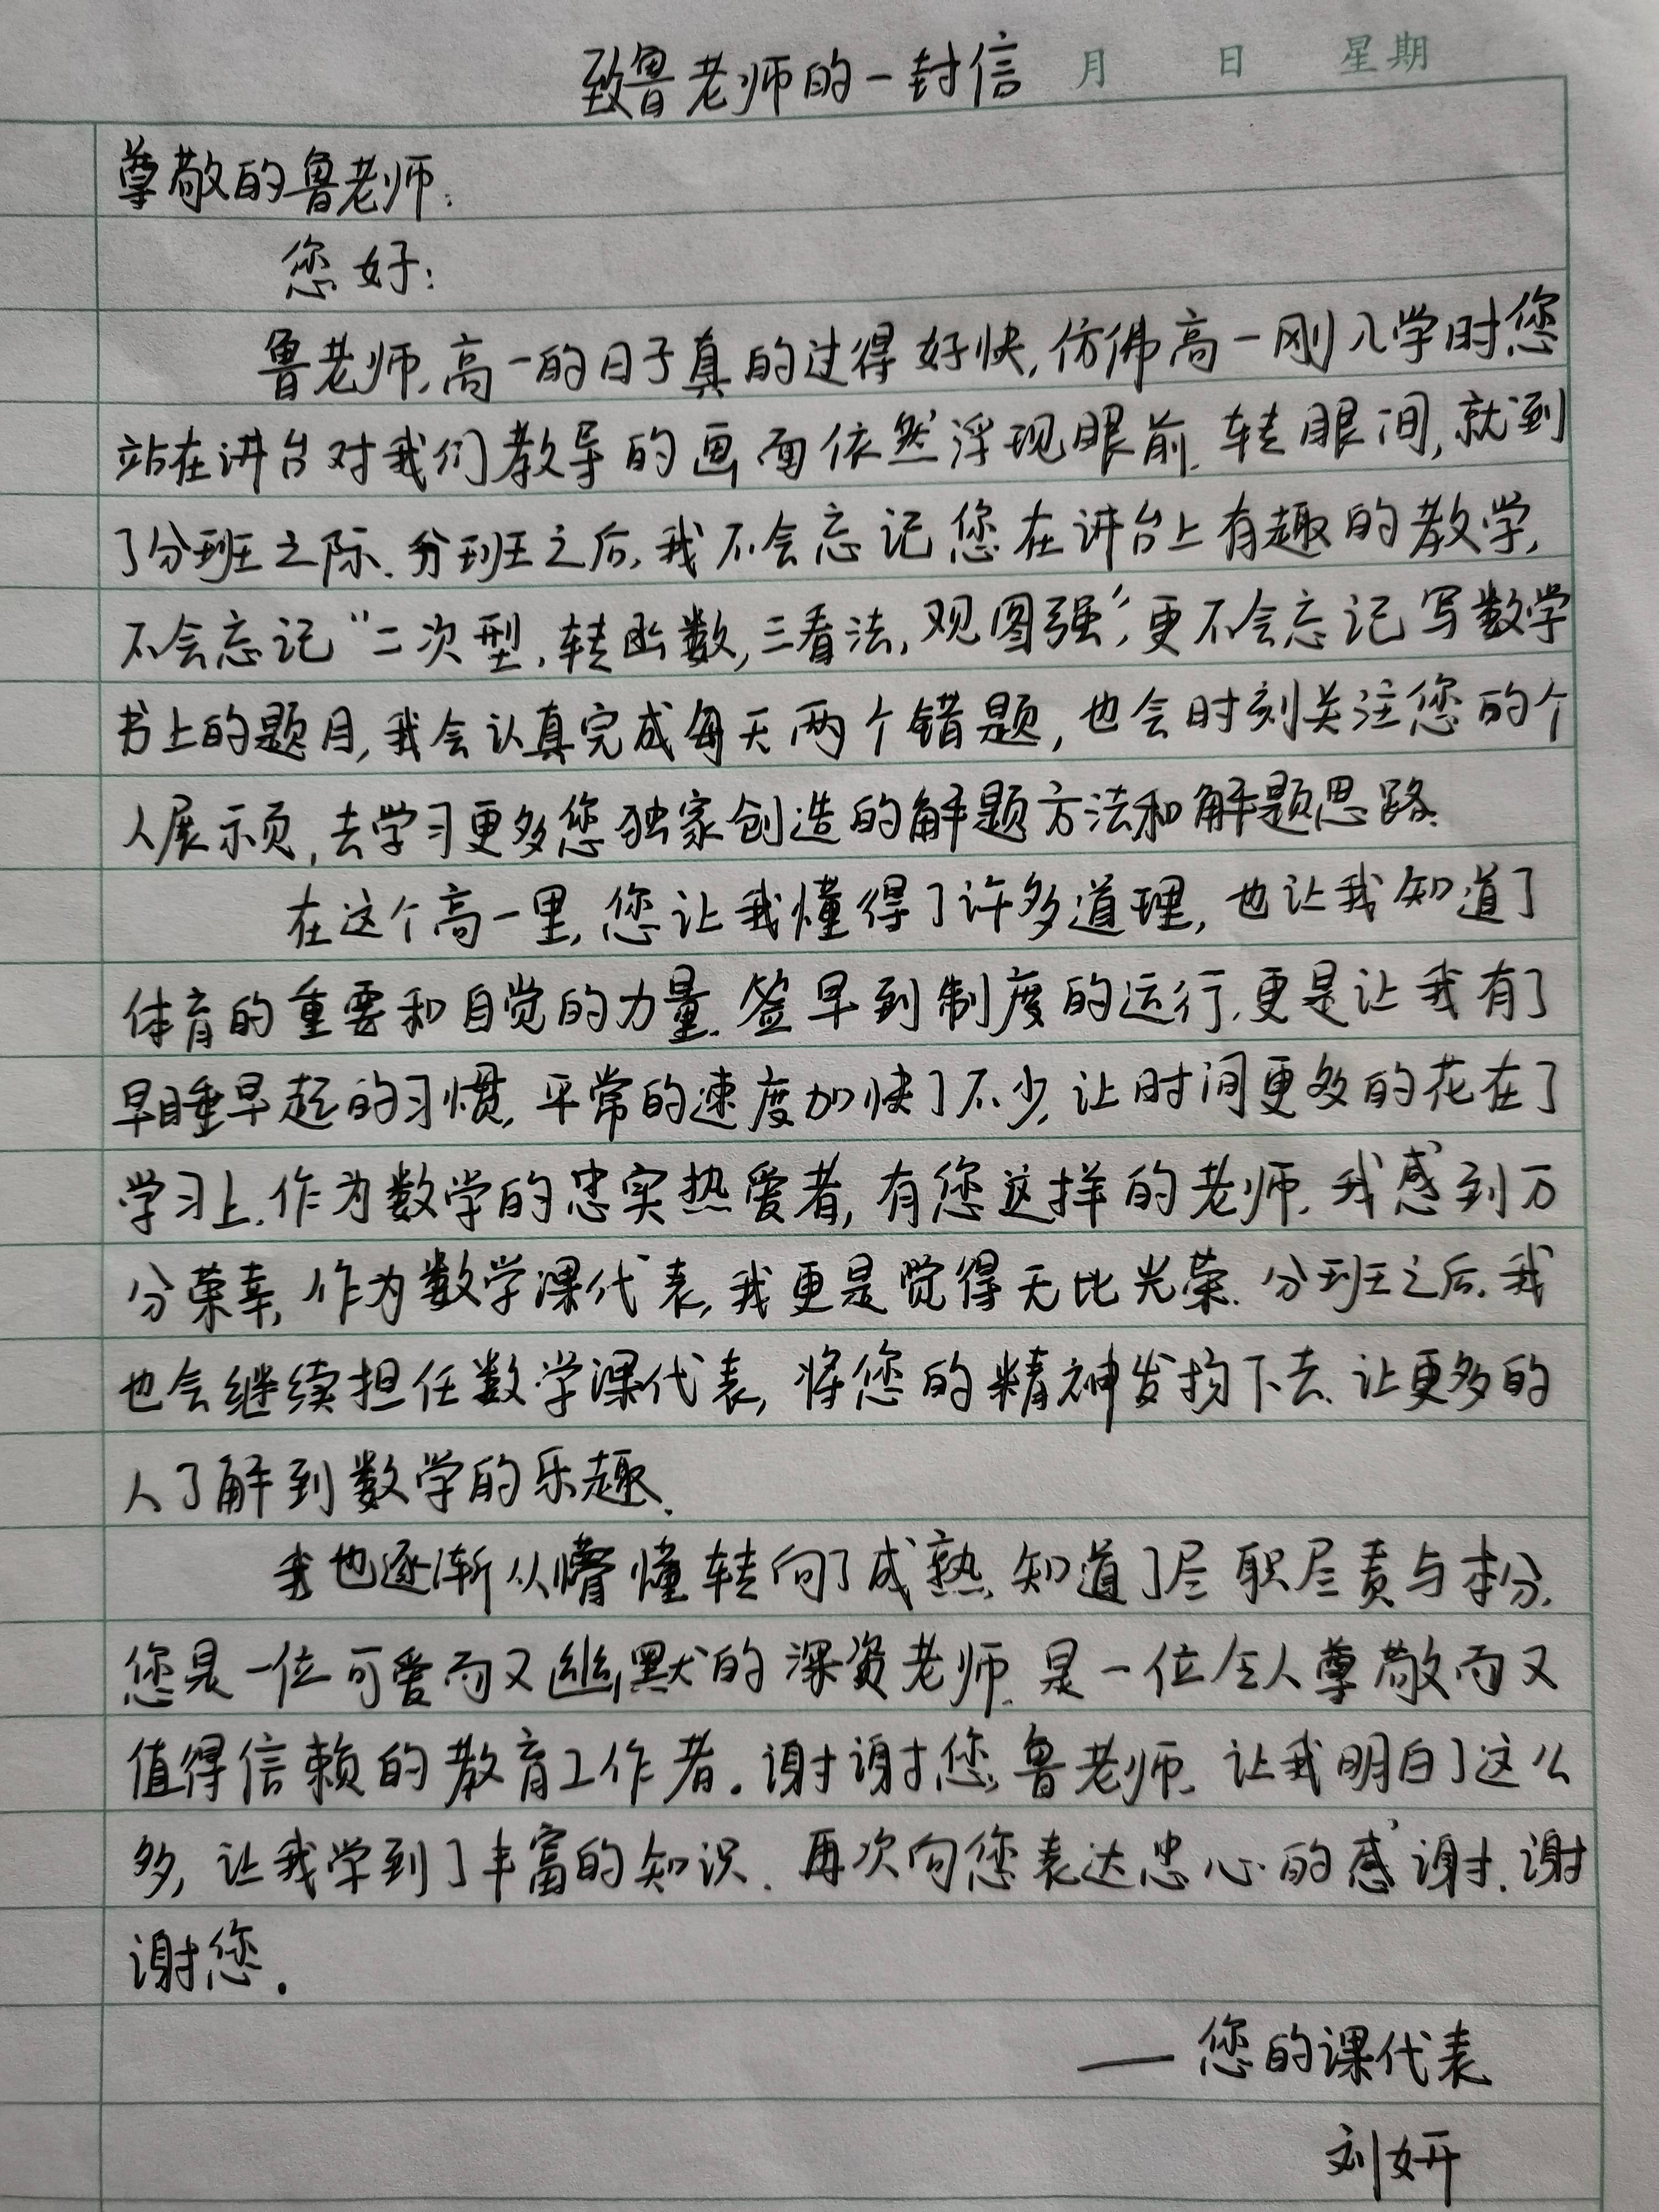 致鲁老师的一封信 月 日 星期
尊敬的鲁老师:
您好:
鲁老师,高一的日子真的过得好快,仿佛高一刚入学时您
站在讲台对我们教导的画面依然浮现眼前.转眼间,就到
了分班之际.分班之后,我不会忘记您在讲台上有趣的教学,
不会忘记“二次型,转函数,三看法,观图强”,更不会忘记写数学
书上的题目,我会认真完成每天两个错题,也会时刻关注您的个
人展示页,去学习更多您独家创造的解题方法和解题思路.
在这个高一里,您让我懂得了许多道理,也让我知道了
体育的重要和自觉的力量.签早到制度的运行,更是让我有了
早睡早起的习惯,平常的速度加快了不少,让时间更多的花在了
学习上.作为数学的忠实热爱者,有您这样的老师,我感到万
分荣幸,作为数学课代表,我更是觉得无比光荣.分班之后,我
也会继续担任数学课代表,将您的精神发扬下去,让更多的
人了解到数学的乐趣.
我也逐渐从懵懂转向了成熟,知道了尽职尽责与本分.
您是一位可爱而又幽默的深资老师,是一位令人尊敬而又
值得信赖的教育工作者.谢谢您,鲁老师,让我明白了这么
多,让我学到了丰富的知识.再次向您表达忠心的感谢.谢
谢您.
——您的课代表
刘妍